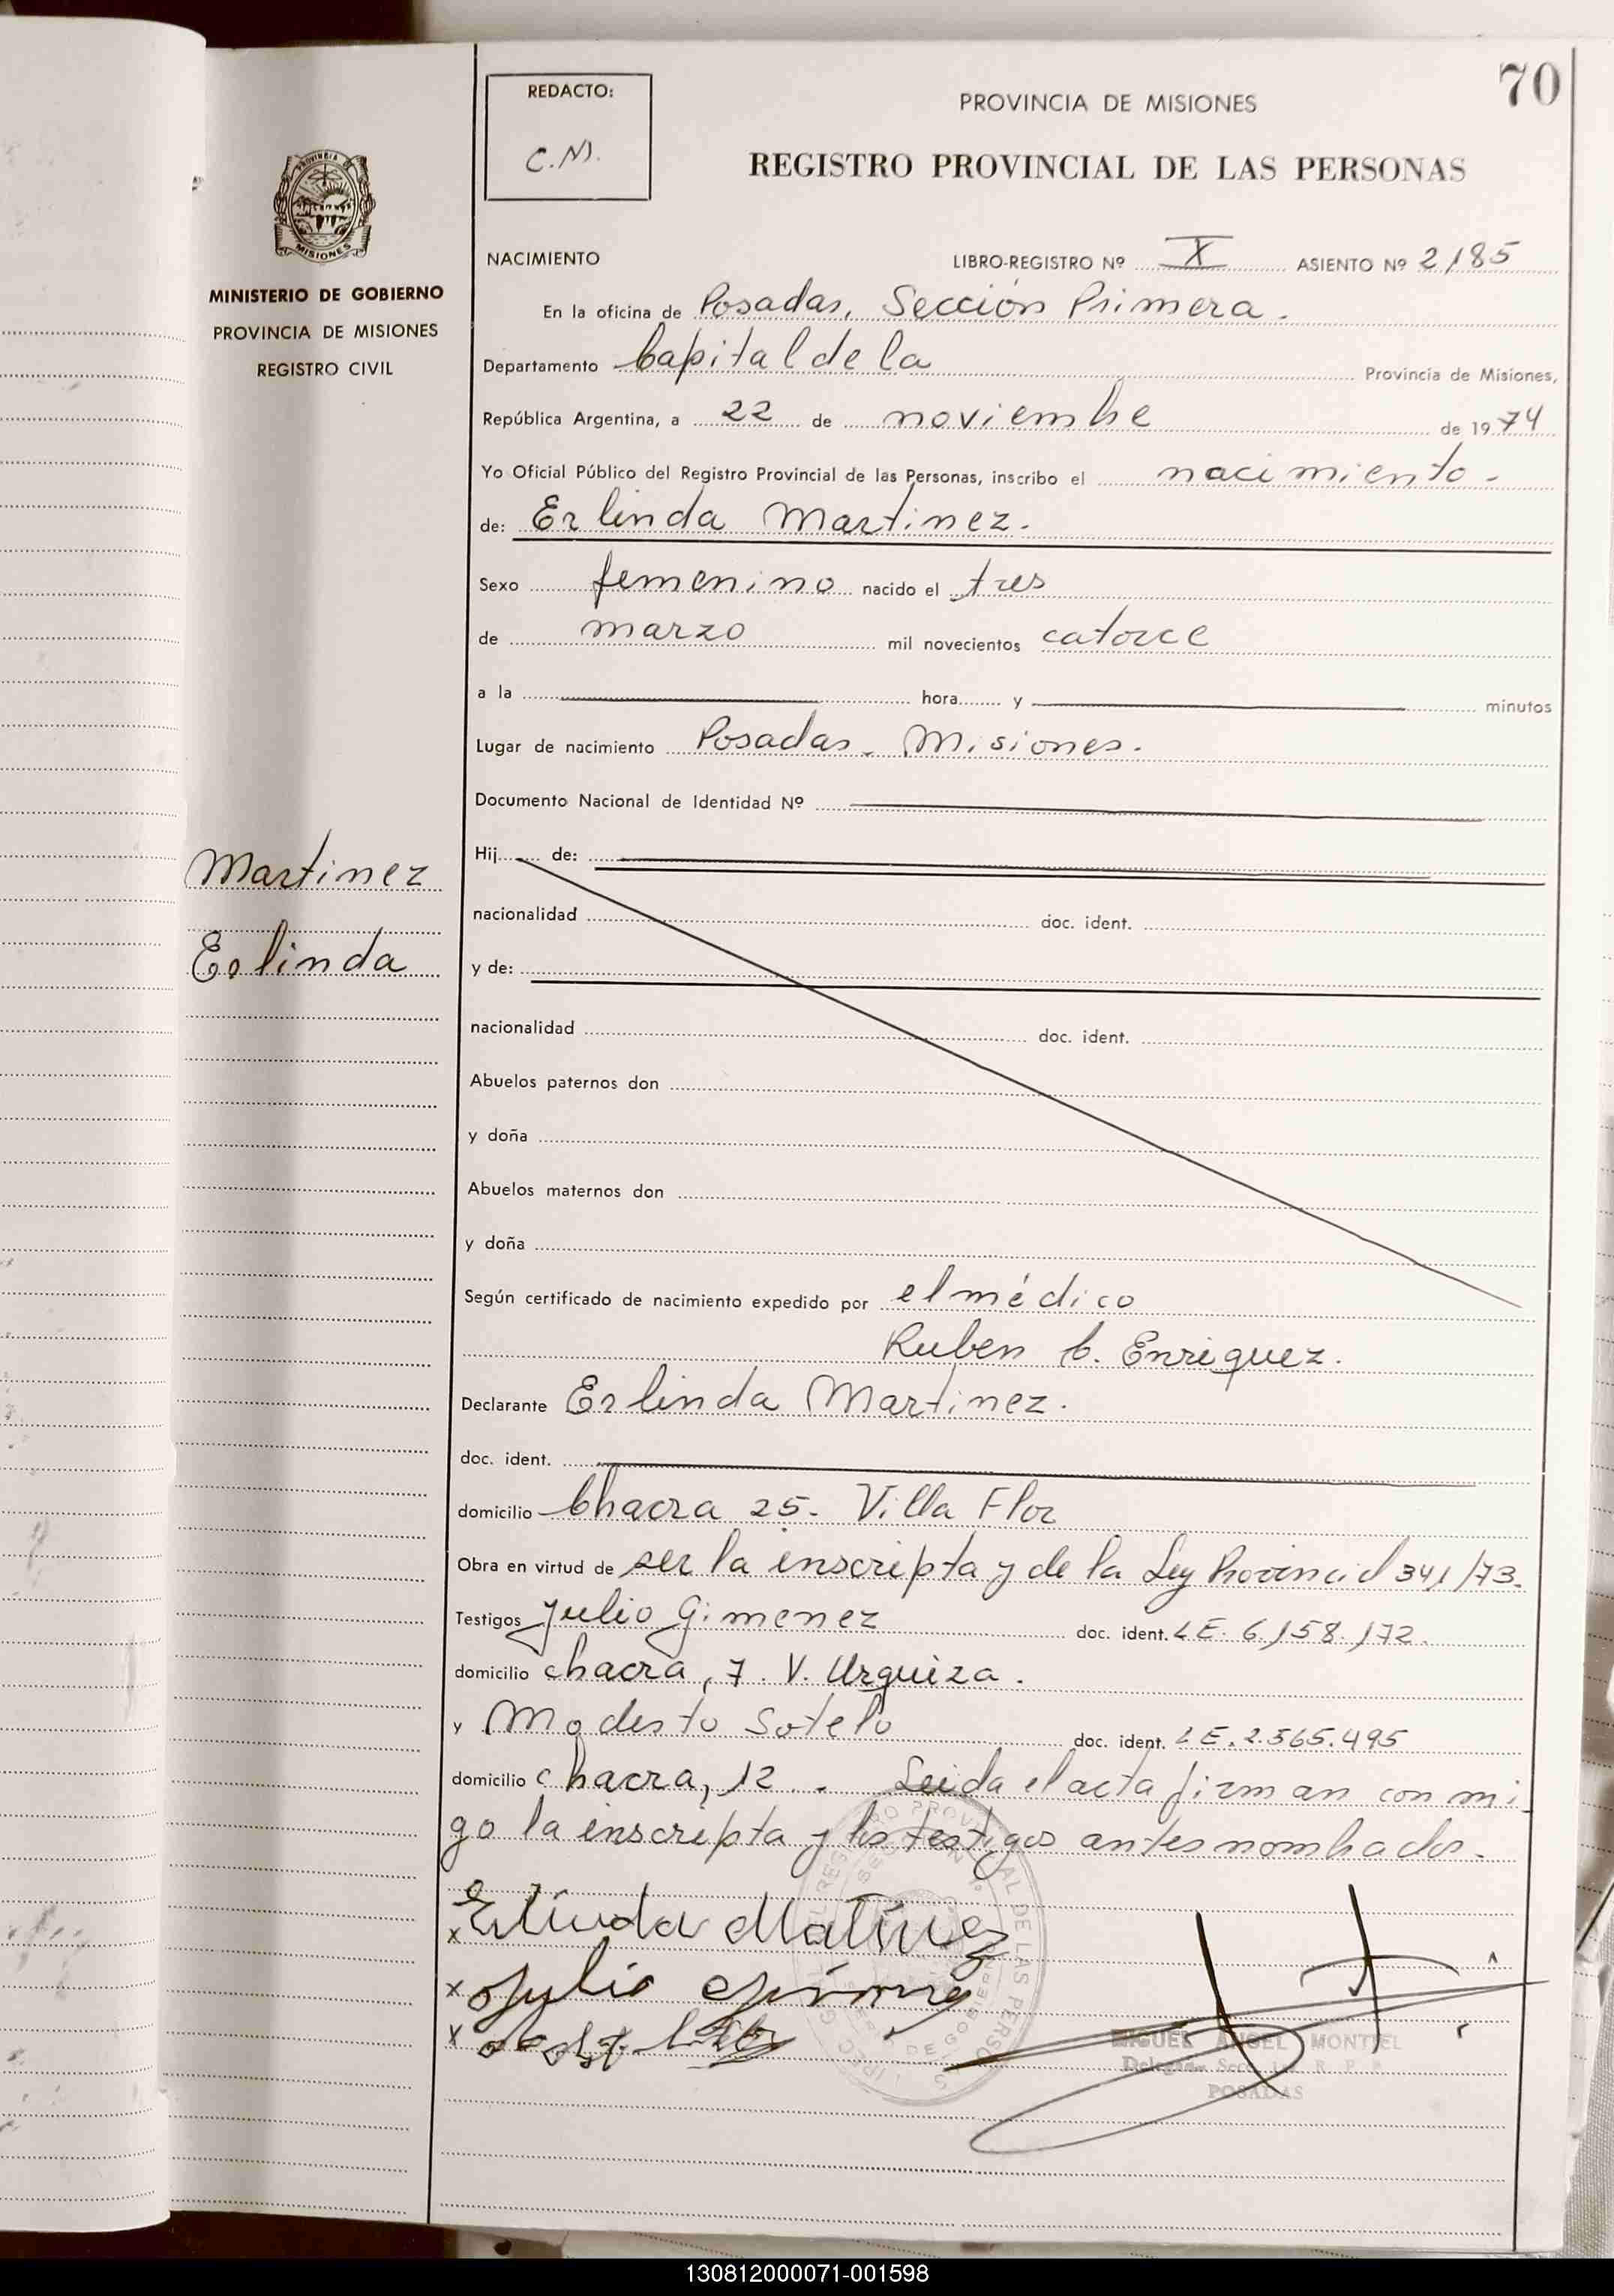 70
REDACTO:
C.M.
PROVINCIA DE MISIONES
REGISTRO PROVINCIAL DE LAS PERSONAS
PROVINCIA DE
MISIONES
MINISTERIO DE GOBIERNO
PROVINCIA DE MISIONES
REGISTRO CIVIL
NACIMIENTO LIBRO-REGISTRO Nº X ASIENTO Nº 2185
En la oficina de Posadas, Sección Primera.
Departamento Capital de la Provincia de Misiones,
República Argentina, a 22 de noviembre de 1974
Yo Oficial Público del Registro Provincial de las Personas, inscribo el nacimiento.
de: Erlinda Martinez.
Sexo femenino nacido el tres
de marzo mil novecientos catorce
a la hora y minutos
Lugar de nacimiento Posadas. Misiones.
Documento Nacional de Identidad Nº
Martinez
Erlinda
Hij de:
nacionalidad doc. ident.
y de:
nacionalidad doc. ident.
Abuelos paternos don
y doña
Abuelos maternos don
y doña
Según certificado de nacimiento expedido por el médico
Ruben C. Enriquez.
Declarante Erlinda Martinez.
doc. ident.
domicilio Chacra 25. Villa Flor
Obra en virtud de ser la inscripta y de la Ley Provincial 341/73.
Testigos Julio Gimenez doc. ident. LE. 6.158.172.
domicilio chacra, 7. V. Urquiza.
y Modesto Sotelo doc. ident. LE. 2.565.495
domicilio chacra, 12. Leida el acta firman con mi
go la inscripta y los testigos antes nombrados.
x Erlinda Martinez
x Julio
x
MIGUEL ANGEL MONTIEL
Delegado Secc. 1ra. R. P. P.
POSADAS
130812000071-001598